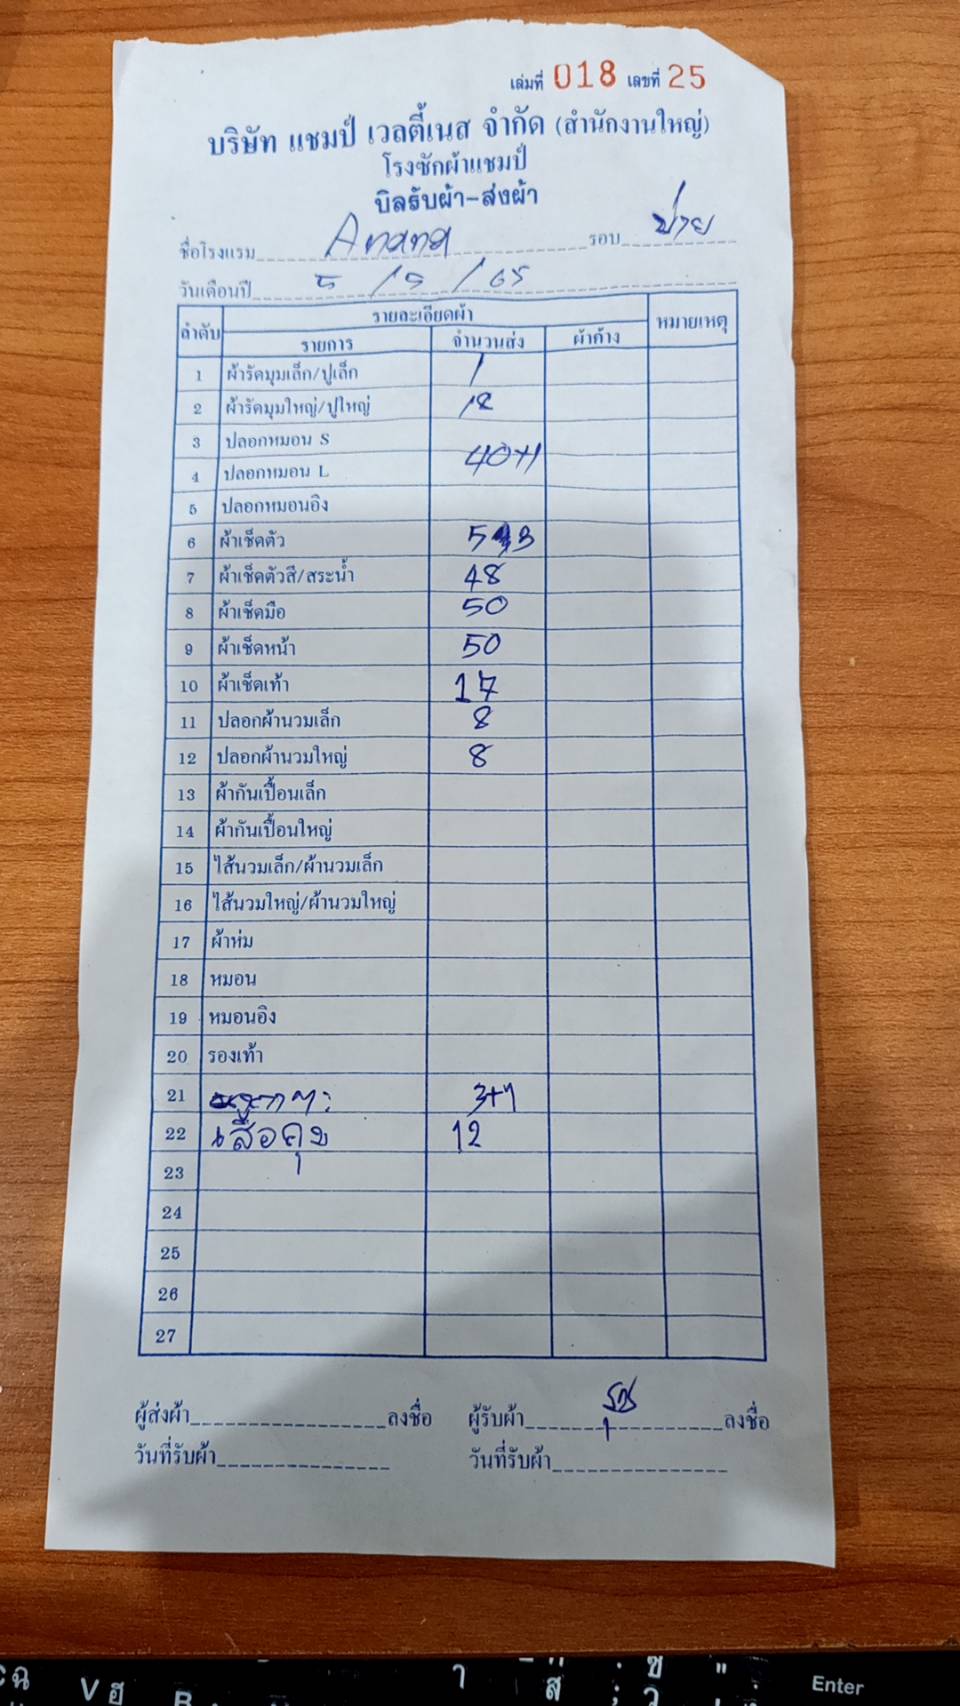 เล่มที่ 018 เลขที่ 25
บริษัท แชมป์ เวลตี้เนส จำกัด (สำนักงานใหญ่)
โรงซักผ้าแชมป์
บิลรับผ้า-ส่งผ้า
ชื่อโรงแรม Anana รอบ บ่าย
วันเดือนปี 5 / 9 / 65
ลำดับ รายละเอียดผ้า หมายเหตุ
รายการ จำนวนส่ง ผ้าค้าง
1 ผ้ารัดมุมเล็ก/ปูเล็ก 1
2 ผ้ารัดมุมใหญ่/ปูใหญ่ 18
3 ปลอกหมอน S
4 ปลอกหมอน L 40+1
5 ปลอกหมอนอิง
6 ผ้าเช็ดตัว
7 ผ้าเช็ดตัวสี/สระน้ำ 48
8 ผ้าเช็ดมือ 50
9 ผ้าเช็ดหน้า 50
10 ผ้าเช็ดเท้า 17
11 ปลอกผ้านวมเล็ก 8
12 ปลอกผ้านวมใหญ่ 8
13 ผ้ากันเปื้อนเล็ก
14 ผ้ากันเปื้อนใหญ่
15 ไส้นวมเล็ก/ผ้านวมเล็ก
16 ไส้นวมใหญ่/ผ้านวมใหญ่
17 ผ้าห่ม
18 หมอน
19 หมอนอิง
20 รองเท้า
21 3+1
22 เสื้อคุม 12
23
24
25
26
27
ผู้ส่งผ้า ลงชื่อ ผู้รับผ้า ลงชื่อ
วันที่รับผ้า วันที่รับผ้า
Enter